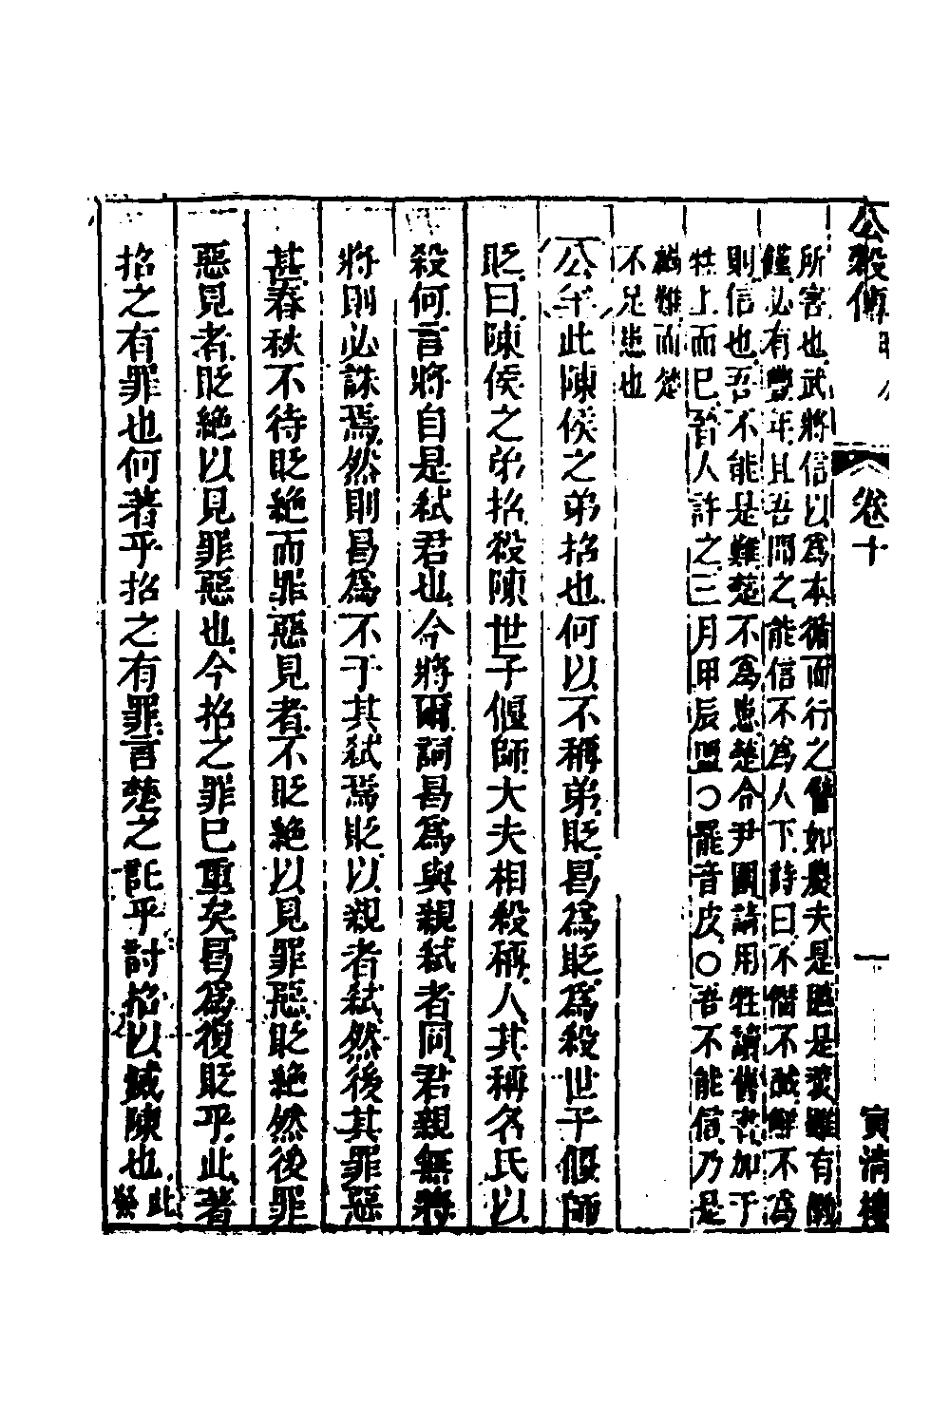 公穀傳 卷十 一 寅清樓
所害也武將信以爲本循而行之譬如農夫是穮是蓘雖有饑
饉必有豐年且吾聞之能信不爲人下詩曰不僭不賊鮮不爲
則信也吾不能是難楚不爲患楚令尹圍請用牲讀舊書加于
牲上而已晉人許之三月甲辰盟〇罷音皮〇吾不能信乃是
難而楚
不足患也
公羊此陳侯之弟招也何以不稱弟貶曷爲貶爲殺世子偃師
貶曰陳侯之弟招殺陳世子偃師大夫相殺稱人其稱名氏以
殺何言將自是弒君也今將爾詞曷爲與親弒者同君親無將
將則必誅焉然則曷爲不于其弒焉貶以親者弒然後其罪惡
甚春秋不待貶絕而罪惡見者不貶絕以見罪惡貶絕然後罪
惡見者貶絕以見罪惡也今招之罪已重矣曷爲復貶乎此著
招之有罪也何著乎招之有罪言楚之託乎討招以滅陳也此